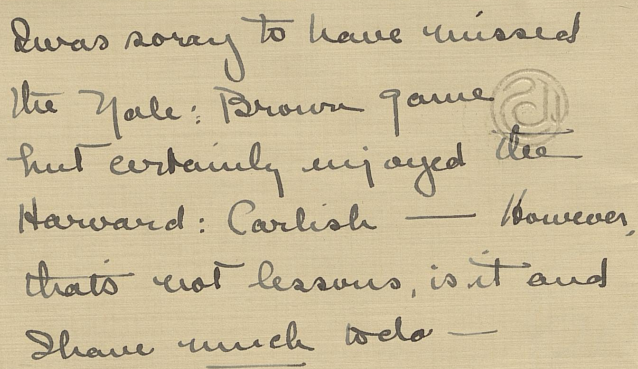 I was sorry to have missed
the Yale : Brown game
but certainly enjoyed the
Harvard : Carlish — However,
that's not lessons, is it and
I have much to do —